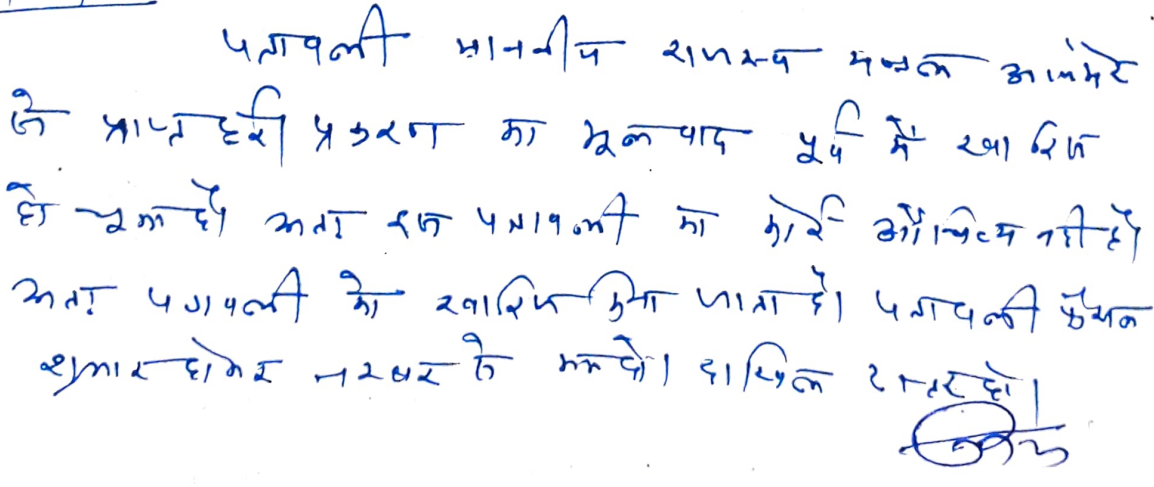 पत्रावली माननीय राजस्व मण्डल अजमेर
से प्राप्त हुई। प्रकरण का मूल वाद पूर्व में खारिज
हो चूका है। अतः इस पत्रावली का कोई औचित्य नहीं है।
अतः पत्रावली को खारिज किया जाता है। पत्रावली फैसल
शुमार होकर नम्बर से कम हो। दाखिल दफ्तर हो।